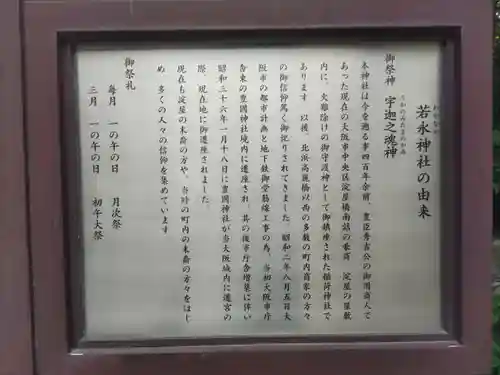 わかなが
若永神社の由来
うかのみたまのかみ
御祭神 宇迦之魂神
本神社は今を遡る事四百年余前、豊臣秀吉公の御用商人で
あった現在の大阪市中央区淀屋橋南詰の豪商 淀屋の屋敷
内に、火難除けの御守護神として御鎮座された稲荷神社で
あります 以後、北浜高麗橋以西の多数の町内商家の方々
の御信仰篤く御祀りされてきました。昭和二年八月五日大
阪市の都市計画と地下鉄御堂筋線工事の為、当初大阪市庁
舎東の豊國神社境内に遷座され、其の後市庁舎増築に伴い
昭和三十六年一月十八日に豊國神社が当大阪城内に遷宮の
際、現在地に御遷座されました。
現在も淀屋の末裔の方や、当時の町内の末裔の方々をはじ
め 多くの人々の信仰を集めています
御祭礼
毎月 一の午の日 月次祭
三月 一の午の日 初午大祭